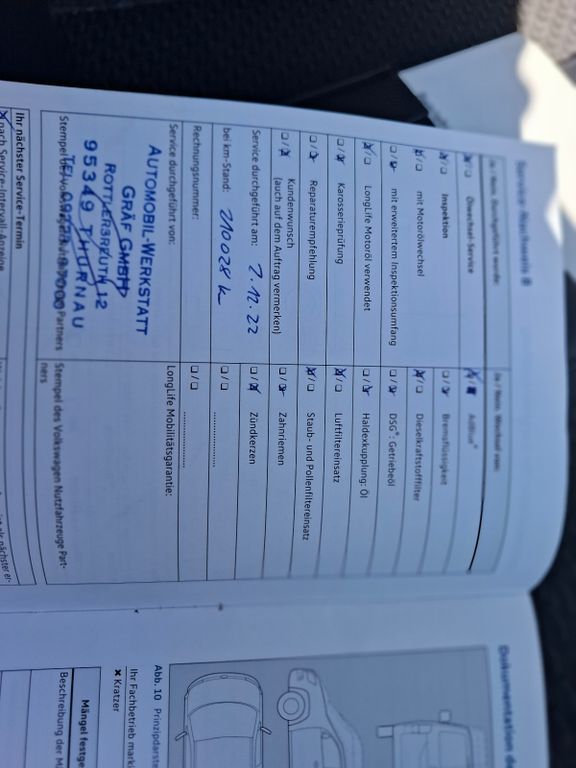 Service-Nachweis 8
Ja / Nein, Durchgeführt wurde:
Ölwechsel-Service
Inspektion
mit Motorölwechsel
mit erweitertem Inspektionsumfang
LongLife Motoröl verwendet
Karosserieprüfung
Reparaturempfehlung
Kundenwunsch
(auch auf dem Auftrag vermerken)
Service durchgeführt am: 7.12.22
bei km-Stand: 210028 k
Rechnungsnummer:
Service durchgeführt von:
AUTOMOBIL-WERKSTATT
GRÄF GMBH
ROTTLERSREUTH 12
95349 THURNAU
Stempel des Volkswagen Partners
Ja / Nein, Wechsel von:
AdBlue®
Bremsflüssigkeit
Dieselkraftstofffilter
DSG®: Getriebeöl
Haldexkupplung: Öl
Luftfiltereinsatz
Staub- und Pollenfiltereinsatz
Zahnriemen
Zündkerzen
LongLife Mobilitätsgarantie:
Stempel des Volkswagen Nutzfahrzeuge Part-
ners
Ihr nächster Service-Termin
nach Service-Intervall-Anzeige
Dokumentation de
Abb. 10 Prinzipdarst
Ihr Fachbetrieb marki
✖ Kratzer
Mängel festge
Beschreibung der M